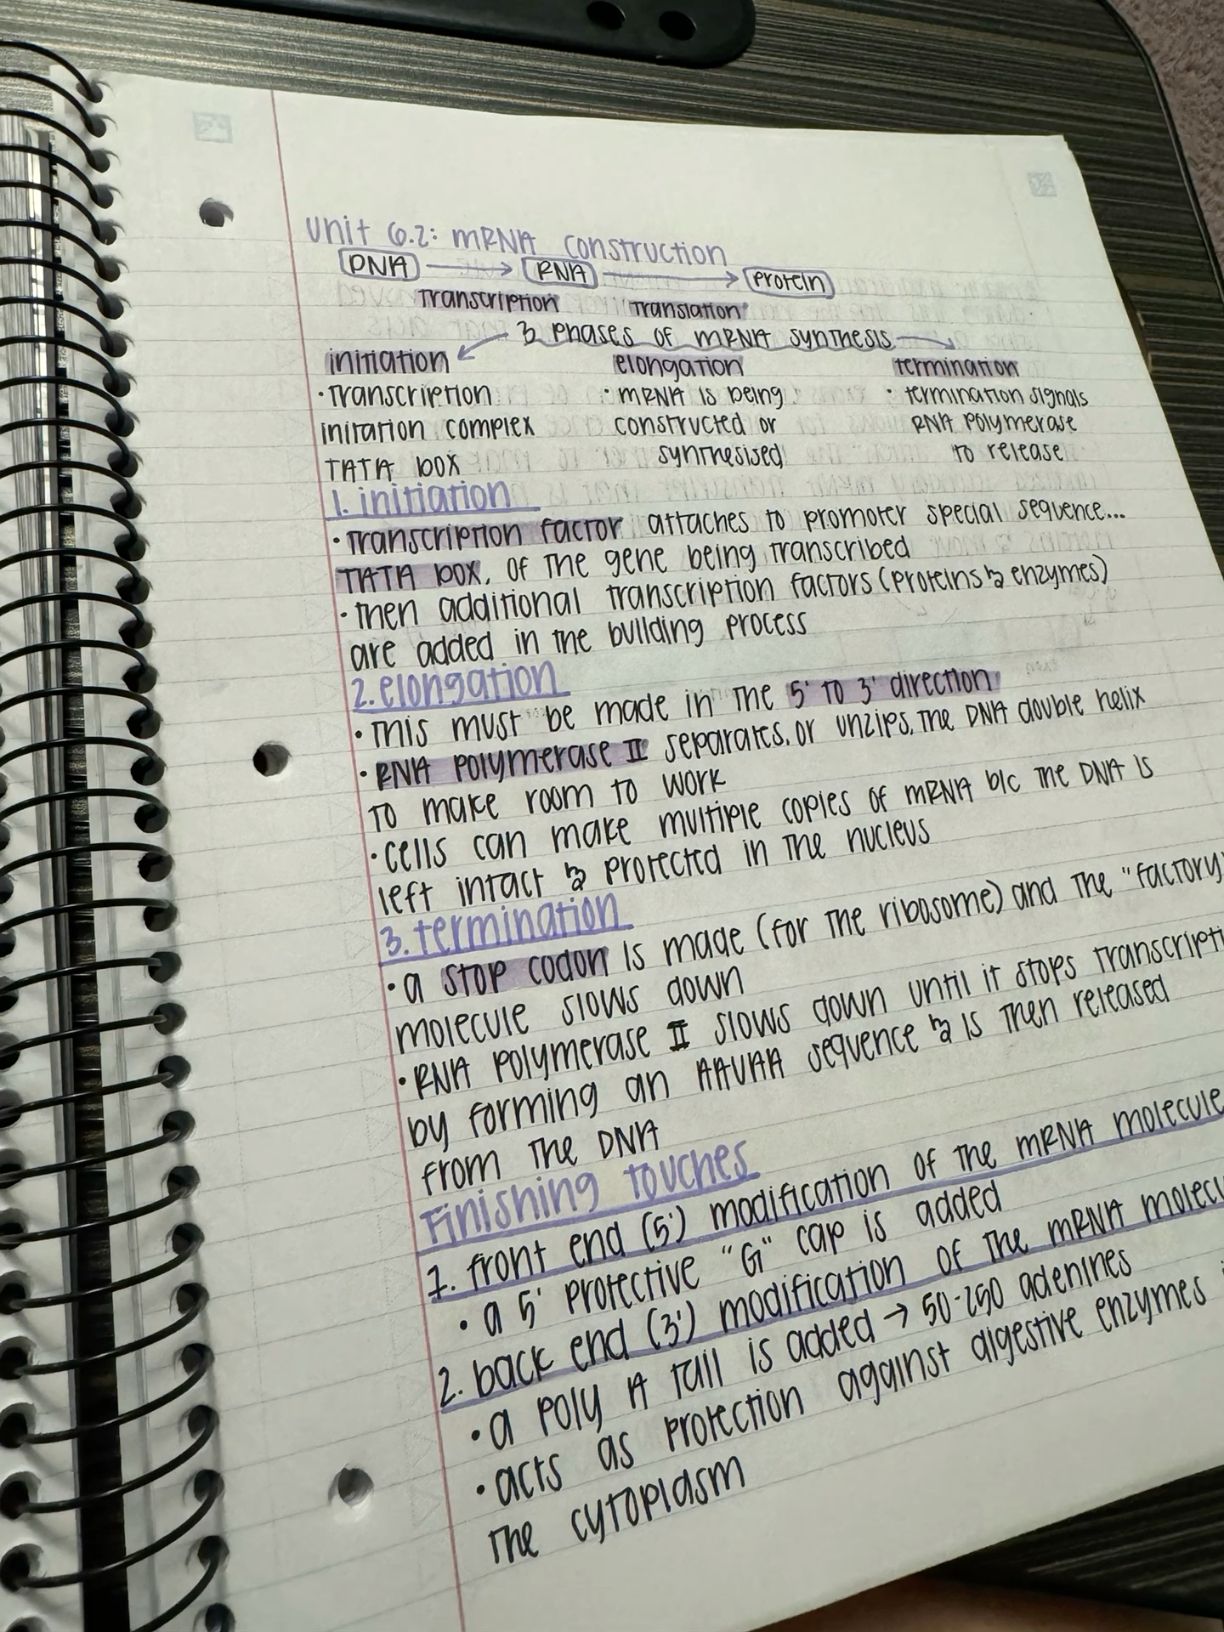 unit 6.2: mRNA construction
DNA → RNA → protein
transcription translation
3 phases of mRNA synthesis
initiation elongation termination
• transcription • mRNA is being • termination signals
initation complex constructed or RNA polymerase
TATA box synthesised to release
1. initiation
• transcription factor attaches to promoter special sequence...
TATA box, of the gene being transcribed
• then additional transcription factors (proteins & enzymes)
are added in the building process
2. elongation
• this must be made in the 5' to 3' direction
• RNA polymerase II separates, or unzips, the DNA double helix
to make room to work
• cells can make multiple copies of mRNA b/c the DNA is
left intact & protected in the nucleus
3. termination
• a stop codon is made (for the ribosome) and the "factory"
molecule slows down
• RNA polymerase II slows down until it stops transcripti
by forming an AAUAA sequence & is then released
from the DNA
Finishing touches
1. front end (5') modification of the mRNA molecule
• a 5' protective "G" cap is added
2. back end (3') modification of the mRNA molecu
• a poly A tail is added → 50-250 adenines
• acts as protection against digestive enzymes
the cytoplasm